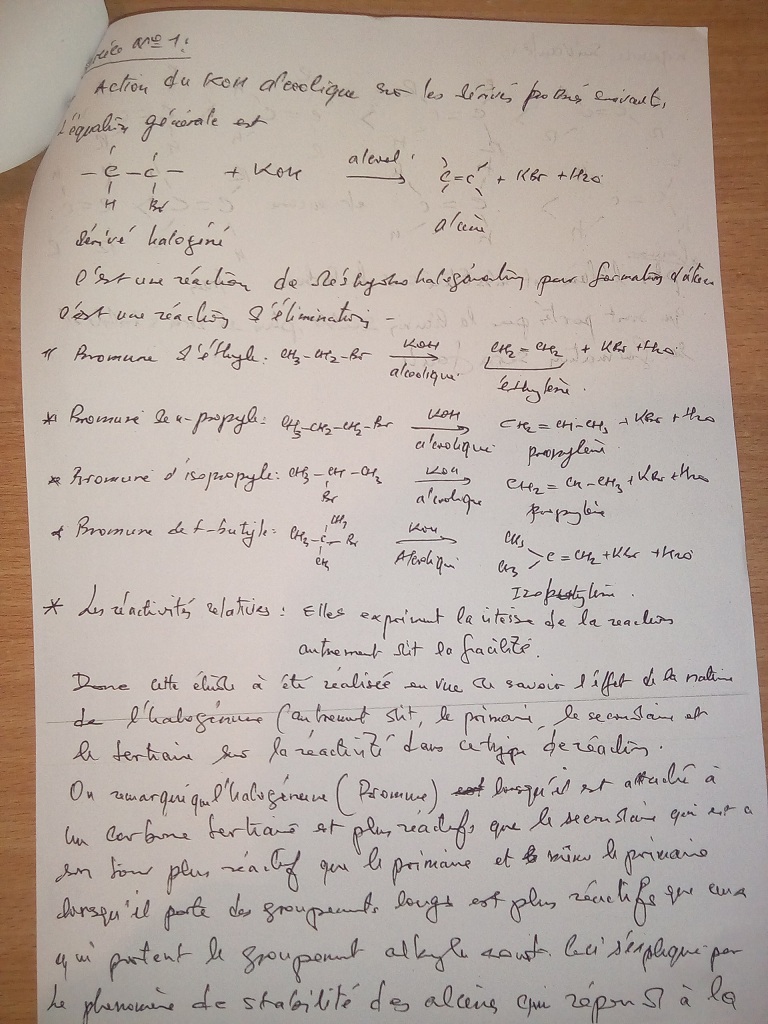 Exercice n° 1:
Action du KOH alcoolique sur les dérivés bromés suivants,
L'équation générale est
- C - C - + KOH alcool → C = C + KBr + H2O
H Br
dérivé halogéné alcène
C'est une réaction de déshydrohalogénation par formation d'alcène
C'est une réaction d'élimination -
* Bromure d'éthyle: CH3-CH2-Br KOH alcoolique → CH2=CH2 + KBr + H2O
éthylène.
* Bromure de n-propyle: CH3-CH2-CH2-Br KOH alcoolique → CH2=CH-CH3 + KBr + H2O
propylène
* Bromure d'isopropyle: CH3-CH-CH3 KOH alcoolique → CH2=CH-CH3 + KBr + H2O
Br propylène
* Bromure de t-butyle: CH3-C-Br KOH Alcoolique → C=CH2 + KBr + H2O
CH3 CH3 CH3 CH3
Isobutylène.
* Les réactivités relatives: Elles expriment la vitesse de la reaction
autrement dit la facilité.
Donc cette étude à été réalisée en vue de savoir l'effet de la nature
de l'halogénure (autrement dit, le primaire, le secondaire et
le tertiaire sur la réactivité dans ce type de réaction.
On remarque que l'halogénure (Bromure) lorsqu'il est attaché à
un carbone tertiaire est plus réactifs que le secondaire qui est a
son tour plus réactif que le primaire et même le primaire
lorsqu'il porte des groupements longs est plus réactifs que ceux
qui portent le groupement alkyle court. Ceci s'explique par
le phenomène de stabilité des alcènes qui répond à la